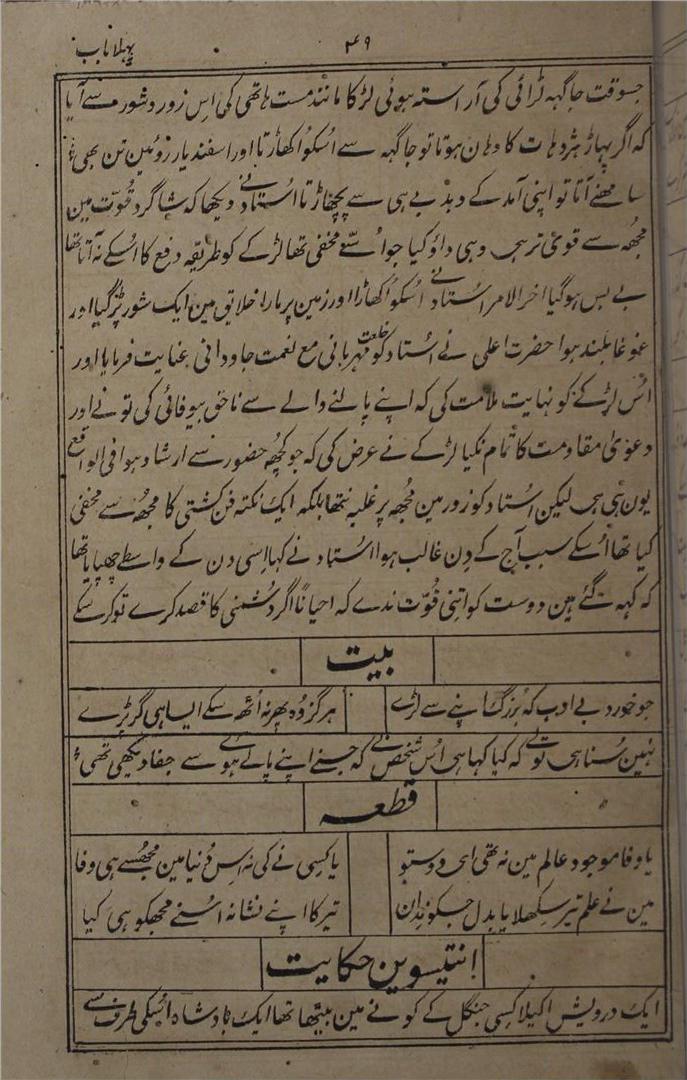 پہلا باب
۴۹
جسوقت جاگہہ لڑائی کی آراستہ ہوئی لڑکا مانند مست ہاتھی کی اس زور و شور سے آیا
کہ اگر پہاڑ ہژدہات کا وہان ہوتا تو جاگہہ سے اسکو اکھاڑتا اور اسفندیار روئین تن بھی
سامھنے آتا تو اپنی آمد کے دبدبے ہی سے پچھاڑتا استاد نے دیکھا کہ شاگرد قوت مین
مجھہ سے قوی تر ہی وہی داؤ کیا جو اسّے مخفی تھا لڑکے کو طریقہ دفع کا اسکے نہ آتا تھا
بے بس ہو گیا اخر الامر استاد نے اسکو اکھاڑا اور زمین پر مارا خلایق مین ایک شور پڑ گیا اور
غوغا بلند ہوا حضرت اعلی نے استاد کو خلعت مہربانی مع نعمت جاودانی عنایت فرمایا اور
اس لڑکے کو نہایت ملامت کی کہ اپنے پالنے والے سے ناحق بیوفائی کی تو نے اور
دعوی مقاومت کا تمام نکیا لڑکے نے عرض کی کہ جو کچھہ حضور سے ارشاد ہوا فی الواقع
یون ہی ہی لیکن استاد کو زور مین مجھہ پر غلبہ نتھا بلکہ ایک نکتہ فن کشتی کا مجھہ سے مخفی
کیا تھا اسکے سبب آج کے دن غالب ہوا استاد نے کہا اسی دن کے واسطے چھپایا تھا
کہ کہہ گئے ہین دوست کو اتنی قوّت ندے کہ احیاناً اگر دشمنی کا قصد کرے تو کر سکے
بیت
جو خورد بے ادب کہ بزرگ اپنے سے لڑے ہرگز وہ پھر نہ اٹھ سکے ایسا ہی گر پڑے
نہین سنا ہی تو نے کہ کیا کہا ہی اس شخص نے کہ جسنے اپنے پالے ہوے سے جفا دیکھی تھی
قطعہ
یا وفا موجود عالم مین نہ تھی ای دوستو یا کسی نے کی نہ اس دنیا مین مجھسے ہی وفا
مین نے علم تیر سکھلایا بدل جسکو ندان تیر کا اپنے نشانہ اسنے مجھکو ہی کیا
انتیسوین حکایت
ایک درویش اکیلا کسی جنگل کے کونے مین بیٹھا تھا ایک پادشاہ اسکی طرف سے